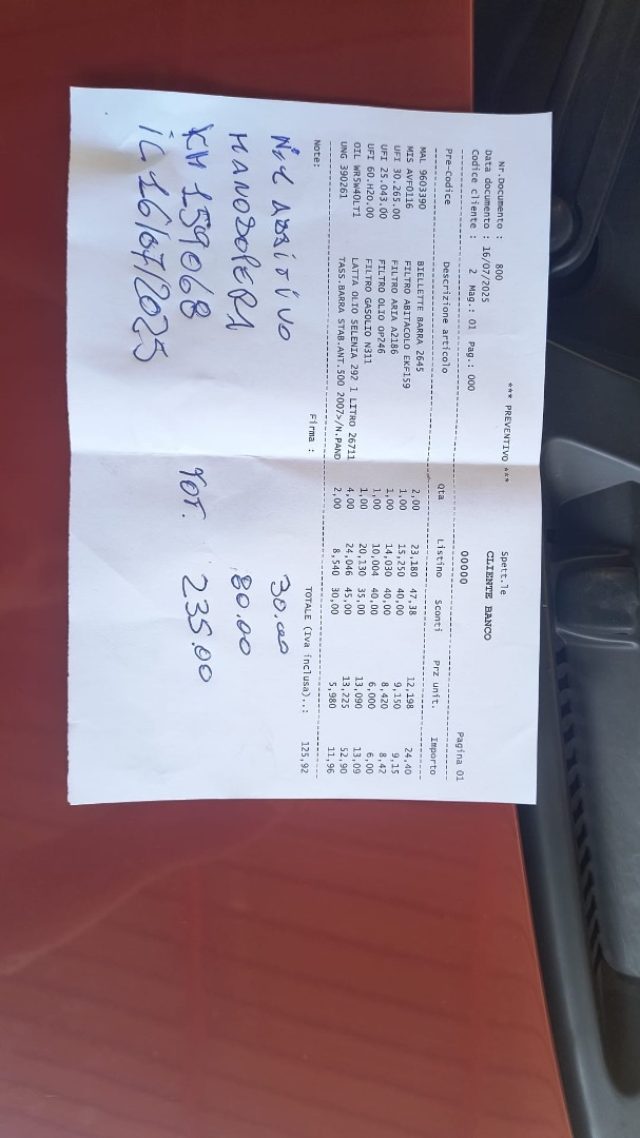 *** PREVENTIVO ***
Nr.Documento : 800 Spett.le
Data documento : 16/07/2025 CLIENTE BANCO
Codice cliente : 2 Mag.: 01 Pag.: 000 00000 Pagina 01
Pre-Codice Descrizione articolo Qta Listino Sconti Prz unit. Importo
MAL 9603390 BIELLETTE BARRA 2645 2,00 23,180 47,38 12,198 24,40
MIS AVF0116 FILTRO ABITACOLO EKF159 1,00 15,250 40,00 9,150 9,15
UFI 30.265.00 FILTRO ARIA A2186 1,00 14,030 40,00 8,420 8,42
UFI 25.043.00 FILTRO OLIO OP246 1,00 10,004 40,00 6,000 6,00
UFI 60.H2O.00 FILTRO GASOLIO N311 1,00 20,130 35,00 13,090 13,09
OIL WR5W40LT1 LATTA OLIO SELENIA 292 1 LITRO 26711 4,00 24,046 45,00 13,225 52,90
UNG 390261 TASS.BARRA STAB.ANT.500 2007>/N.PAND 2,00 8,540 30,00 5,980 11,96
TOTALE (Iva inclusa)..: 125,92
Note: Firma :
ADDITIVO 30.00
MANODOPERA 80.00
KM 159068 TOT. 235.00
IL 16/07/2025